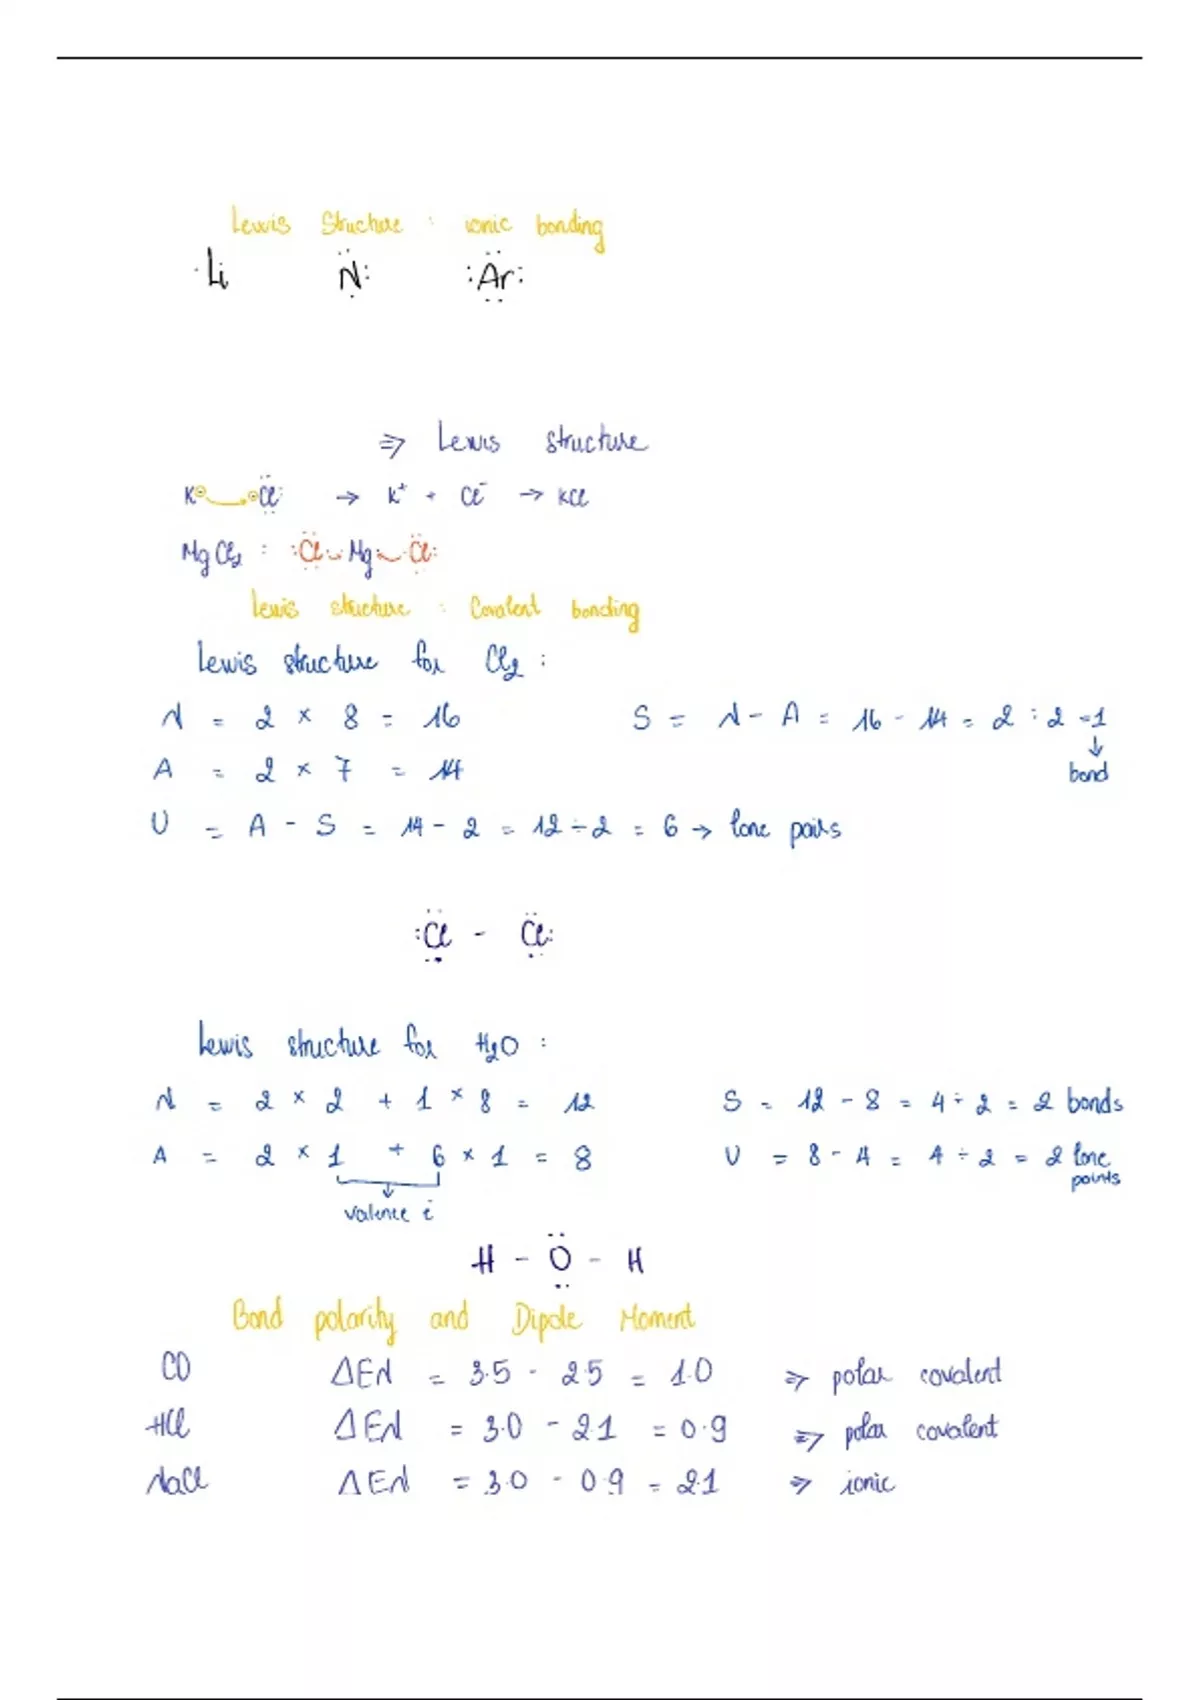 Lewis Structure : ionic bonding
·Li N: :Ar:
⇒ Lewis structure
K Cl: → K⁺ + Cl⁻ → KCl
MgCl₂ : :Cl Mg Cl:
Lewis structure : Covalent bonding
Lewis structure for Cl₂ :
N = 2 × 8 = 16 S = N - A = 16 - 14 = 2 ÷ 2 = 1
↓
A = 2 × 7 = 14 bond
U = A - S = 14 - 2 = 12 ÷ 2 = 6 → lone pairs
:Cl - Cl:
Lewis structure for H₂O :
N = 2 × 2 + 1 × 8 = 12 S = 12 - 8 = 4 ÷ 2 = 2 bonds
A = 2 × 1 + 6 × 1 = 8 U = 8 - 4 = 4 ÷ 2 = 2 lone
points
valence ē
H - O - H
Bond polarity and Dipole Moment
CO ΔEN = 3.5 - 2.5 = 1.0 ⇒ polar covalent
HCl ΔEN = 3.0 - 2.1 = 0.9 ⇒ polar covalent
NaCl ΔEN = 3.0 - 0.9 = 2.1 ⇒ ionic